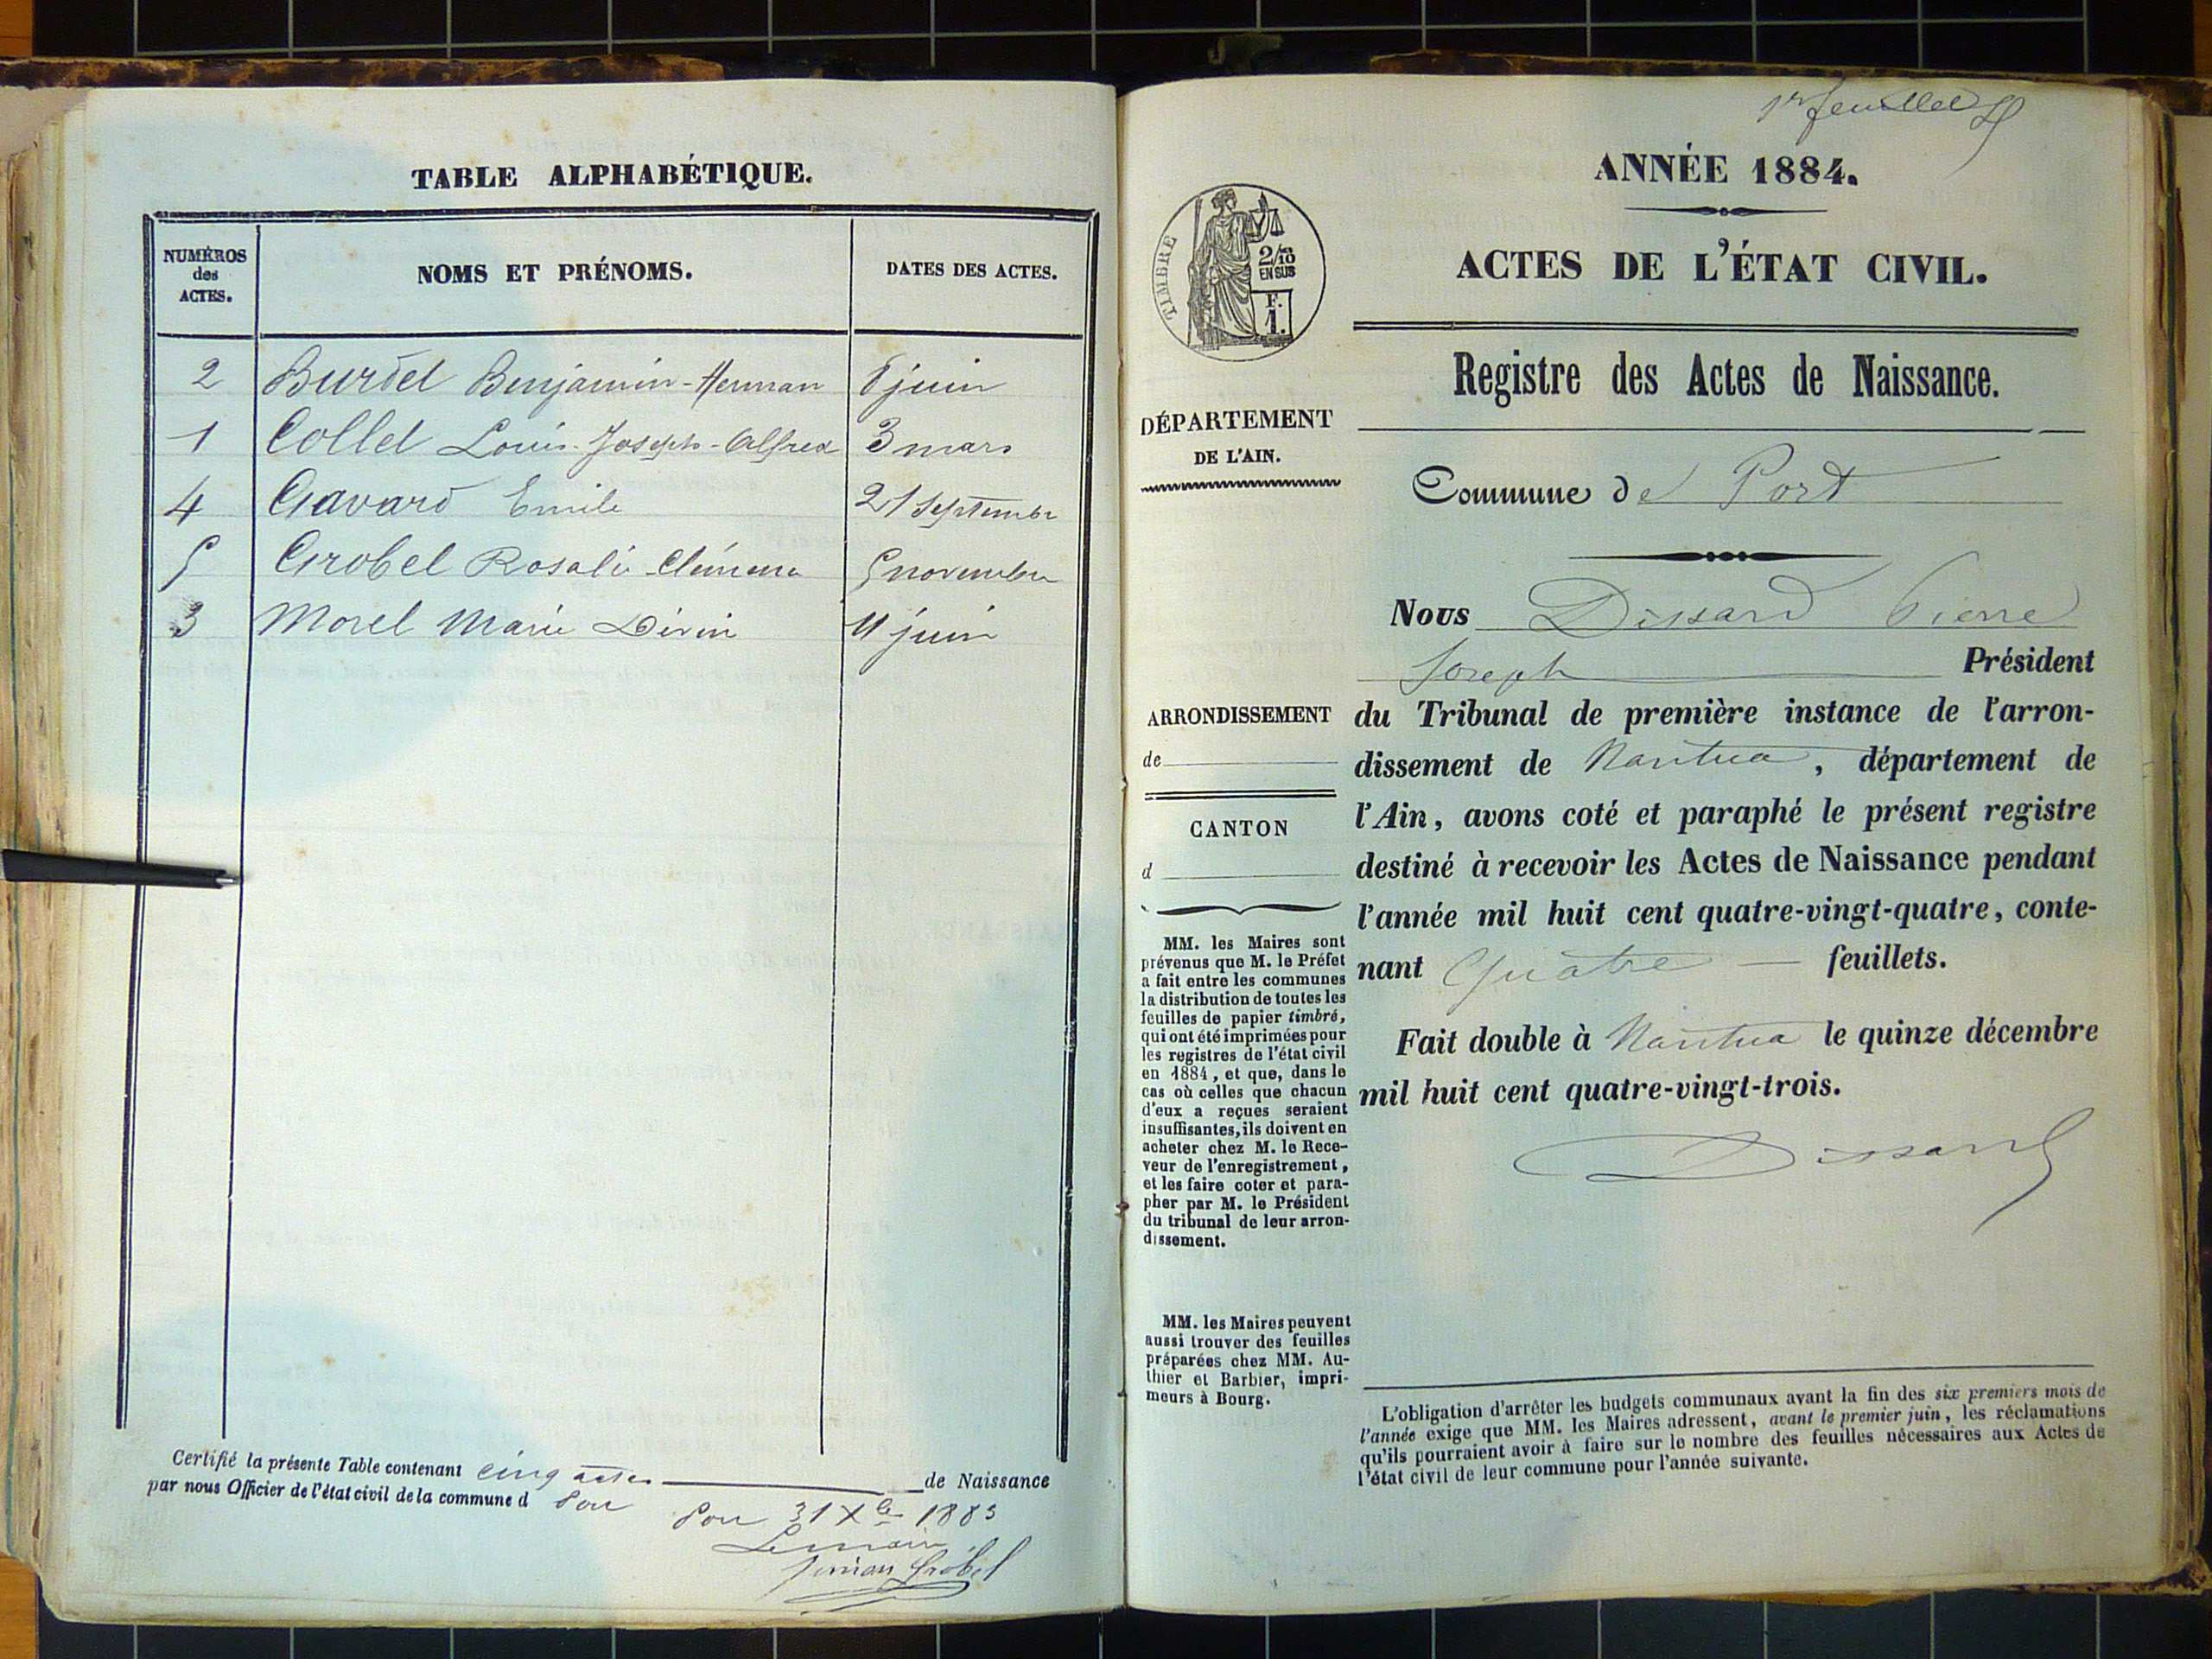 TABLE ALPHABÉTIQUE.
NUMÉROS
des
ACTES.
NOMS ET PRÉNOMS.
DATES DES ACTES.
2 Burdet Benjamin-Herman 8 juin
1 Collet Louis-Joseph-Alfred 3 mars
4 Gavard Emile 21 septembre
5 Grobel Rosalie Clémence 5 novembre
3 Morel Marie 11 juin
Certifié la présente Table contenant cinq actes de Naissance
par nous Officier de l'état civil de la commune d Port
Port 31 Xbre 1883
Le maire
Grobel
1er feuillet
ANNÉE 1884.
ACTES DE L'ÉTAT CIVIL.
TIMBRE
2/10
EN SUS
F.
1.
Registre des Actes de Naissance.
DÉPARTEMENT
DE L'AIN.
Commune de Port
Nous Dissard Pierre
Joseph Président
du Tribunal de première instance de l'arron-
dissement de Nantua, département de
l'Ain, avons coté et paraphé le présent registre
destiné à recevoir les Actes de Naissance pendant
l'année mil huit cent quatre-vingt-quatre, conte-
nant Quatre feuillets.
Fait double à Nantua le quinze décembre
mil huit cent quatre-vingt-trois.
Dissard
ARRONDISSEMENT
de
CANTON
d
MM. les Maires sont
prévenus que M. le Préfet
a fait entre les communes
la distribution de toutes les
feuilles de papier timbré,
qui ont été imprimées pour
les registres de l'état civil
en 1884, et que, dans le
cas où celles que chacun
d'eux a reçues seraient
insuffisantes, ils doivent en
acheter chez M. le Rece-
veur de l'enregistrement,
et les faire coter et para-
pher par M. le Président
du tribunal de leur arron-
dissement.
MM. les Maires peuvent
aussi trouver des feuilles
préparées chez MM. Au-
thier et Barbier, impri-
meurs à Bourg.
L'obligation d'arrêter les budgets communaux avant la fin des six premiers mois de
l'année exige que MM. les Maires adressent, avant le premier juin, les réclamations
qu'ils pourraient avoir à faire sur le nombre des feuilles nécessaires aux Actes de
l'état civil de leur commune pour l'année suivante.